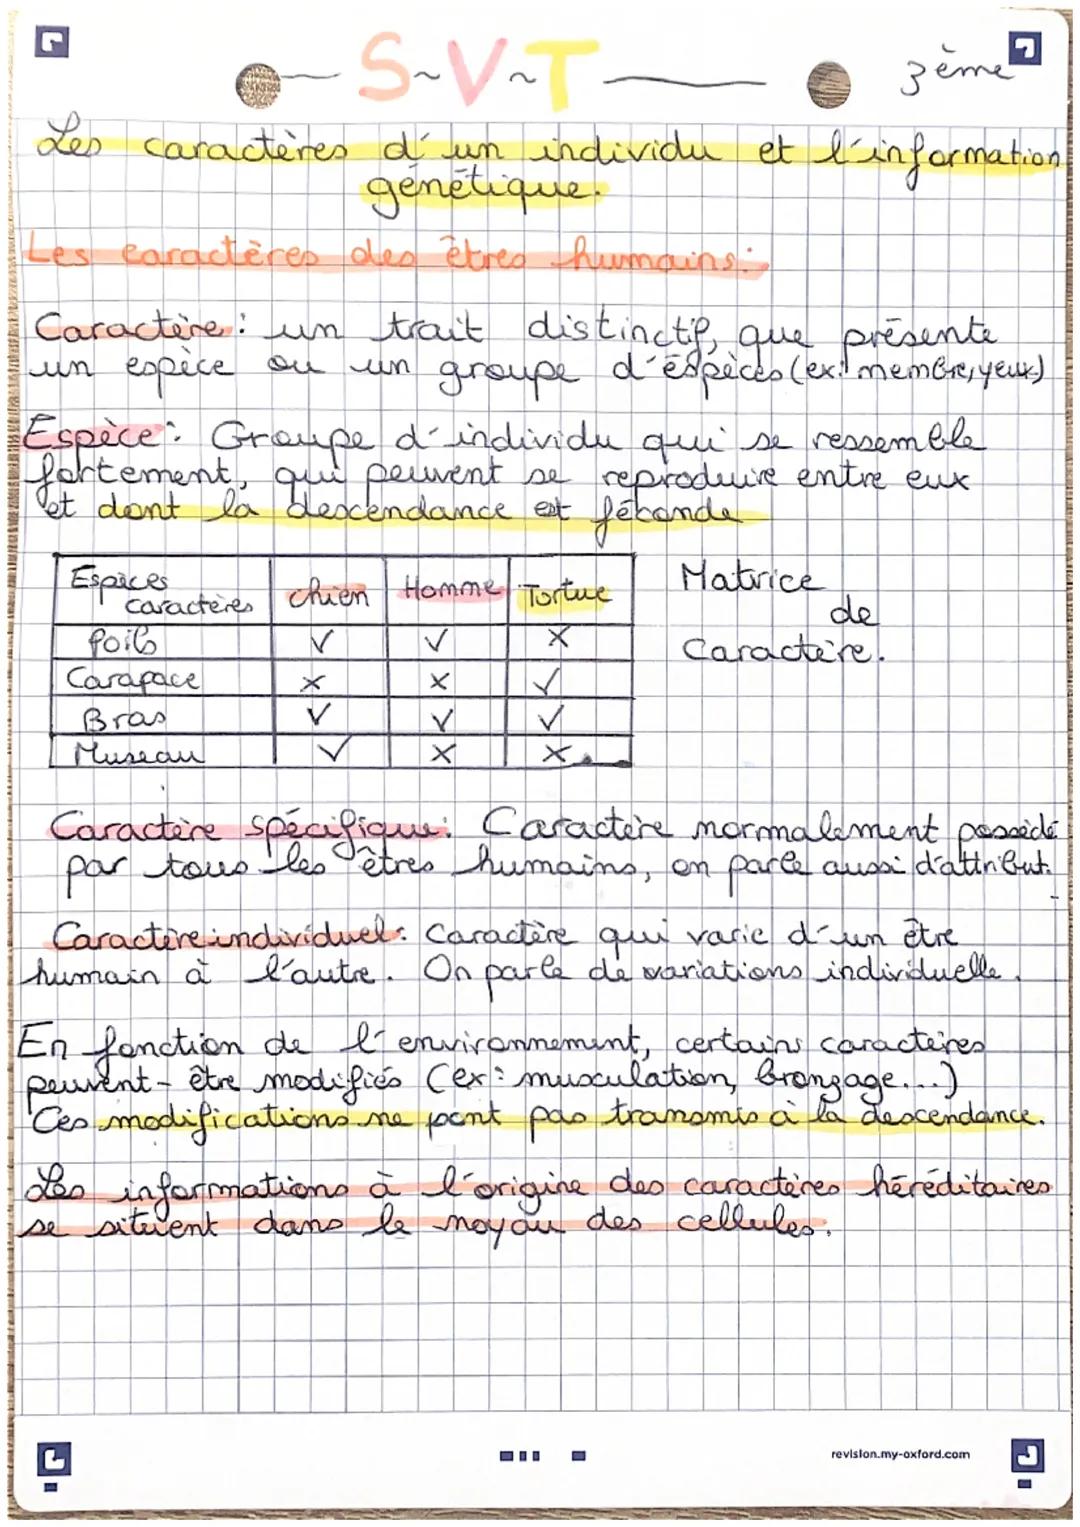 S~V~T
3ème
Les caractères d'un individu et l'information
génétique.
Les caractères des êtres humains:
Caractère: un trait distinctif, que présente
un espèce ou un groupe d'éspèces (ex: membre, yeux)
Espèce: Groupe d'individu qui se ressemble
fortement, qui peuvent se reproduire entre eux
et dont la descendance est féconde
Espèces caractères | chien | Homme | Tortue
Poils | ✓ | ✓ | X
Carapace | X | X | ✓
Bras | ✓ | ✓ | ✓
Museau | ✓ | X | X
Matrice
de
Caractère.
Caractère spécifique: Caractère normalement possédé
par tous les êtres humains, on parle aussi d'attribut.
Caractère individuel: Caractère qui varie d'un être
humain à l'autre. On parle de variations individuelle.
En fonction de l'environnement, certains caractères
peuvent-être modifiés (ex: musculation, bronzage...)
Ces modifications ne sont pas transmis à la descendance.
Les informations à l'origine des caractères héréditaires
se situent dans le noyau des cellules.
revision.my-oxford.com